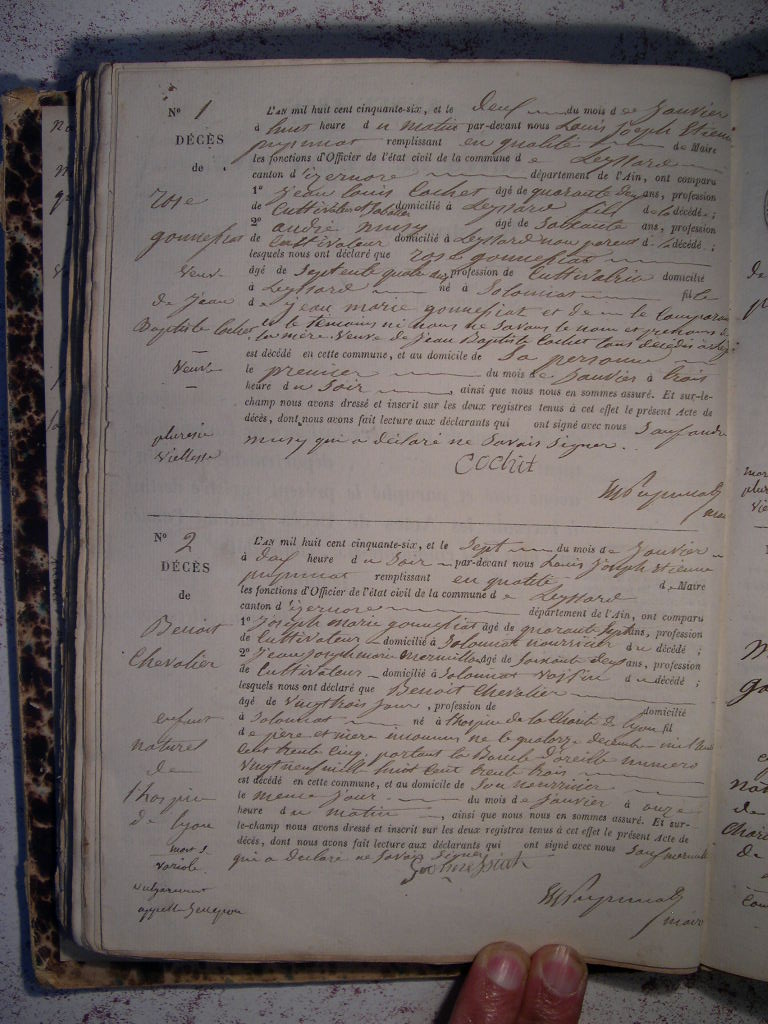 N° 1
DÉCÈS
de
rose
gonnessiat
Veuve
de Jean
Baptiste Cochet
Veuve
pluresie
Viellesse
L'AN mil huit cent cinquante-six, et le deux du mois de Janvier
à huit heure du matin par-devant nous Louis Joseph Etienne
puysunat remplissant en qualité de Maire
les fonctions d'Officier de l'état civil de la commune de Leyssard
canton d'izernore département de l'Ain, ont comparu
1° Jean Louis Cochet âgé de quarante deux ans, profession
de Cultivateur et Sabotier domicilié à Leyssard fils de la décédée ;
2° andré musy âgé de Soixante ans, profession
de Cultivateur domicilié à Leyssard non parent de la décédée ;
lesquels nous ont déclaré que rose gonnessiat
âgé de Septente quatre ans, profession de Cultivatrice domicilié
à Leyssard né à Solomiat fille
de jean marie gonnessiat et de le Comparant
et le témoins ni nous ne Savons le nom et prenoms de
la mère. Veuve de Jean Baptiste Cochet tous décédés à
est décédé en cette commune, et au domicile de Sa personne
le premier du mois de Janvier à trois
heure du Soir, ainsi que nous nous en sommes assuré. Et sur-le-
champ nous avons dressé et inscrit sur les deux registres tenus à cet effet le présent Acte de
décès, dont nous avons fait lecture aux déclarants qui ont signé avec nous Sauf andré
musy qui a déclaré ne Savoir Signer.
Cochet
maire
N° 2
DÉCÈS
de
Benoit
Chevalier
enfant
naturel
de
l'hospice
de lyon
mort d.
variole.
vulgairement
L'AN mil huit cent cinquante-six, et le Sept du mois de Janvier
à deux heure du Soir par-devant nous Louis Joseph Etienne
puysunat remplissant en qualité de Maire
les fonctions d'Officier de l'état civil de la commune de Leyssard
canton d'izernore département de l'Ain, ont comparu
1° Joseph marie gonnessiat âgé de quarante Sept ans, profession
de Cultivateur domicilié à Solomiat nourricier du décédé ;
2° Jean Joseph marie mermillon âgé de Soixante deux ans, profession
de Cultivateur domicilié à Solomiat Voisin du décédé ;
lesquels nous ont déclaré que Benoit Chevalier
âgé de Vingt trois Jours, profession de domicilié
à Solomiat né à l'hospice de la Charité de lyon fil
de père et mère inconnus né le quatorze decembre mil huit
Cent trente Cinq. portant la Boucle d'oreille numero
Vingt neuf mille huit Cent trente trois
est décédé en cette commune, et au domicile de Son nourricier
le meme Jour du mois de Janvier à onze
heure du matin, ainsi que nous nous en sommes assuré. Et sur-
le-champ nous avons dressé et inscrit sur les deux registres tenus à cet effet le présent Acte de
décès, dont nous avons fait lecture aux déclarants qui ont signé avec nous Sauf mermillon
qui a declaré ne Savoir Signer
maire